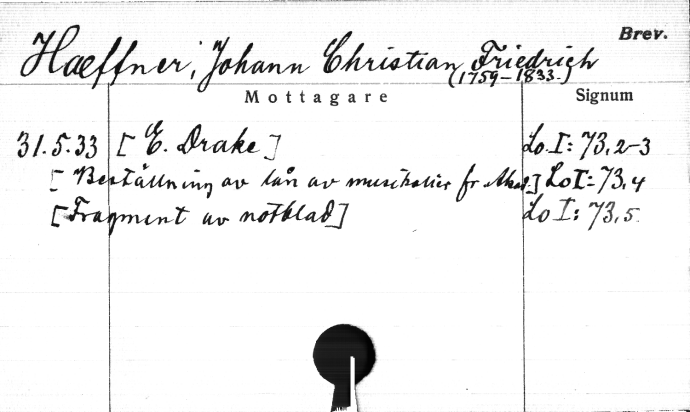 Brev.
Haeffner, Johann Christian Friedrich
(1759-1833.)
Mottagare Signum
31.5.33 [E. Drake] Lo I: 73,2-3
[Beställning av lån av musikalier fr. Akad.] Lo I: 73,4
[Fragment av notblad] Lo I: 73,5